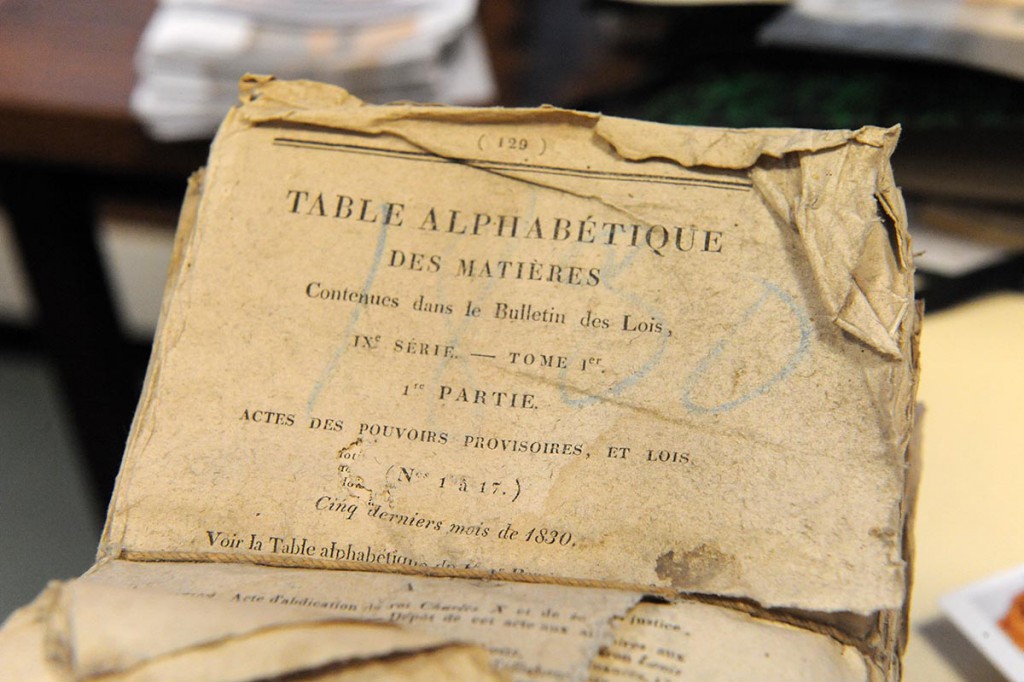 ( 129 )
TABLE ALPHABÉTIQUE
DES MATIÈRES
Contenues dans le Bulletin des Lois,
IXe SÉRIE. — TOME Ier.
1re PARTIE.
ACTES DES POUVOIRS PROVISOIRES, ET LOIS
(Nos 1 à 17.)
Cinq derniers mois de 1830.
Voir la Table alphabétique
A
Acte d'abdication roi Charles X et de justice.
Dépôt de cet acte aux aux